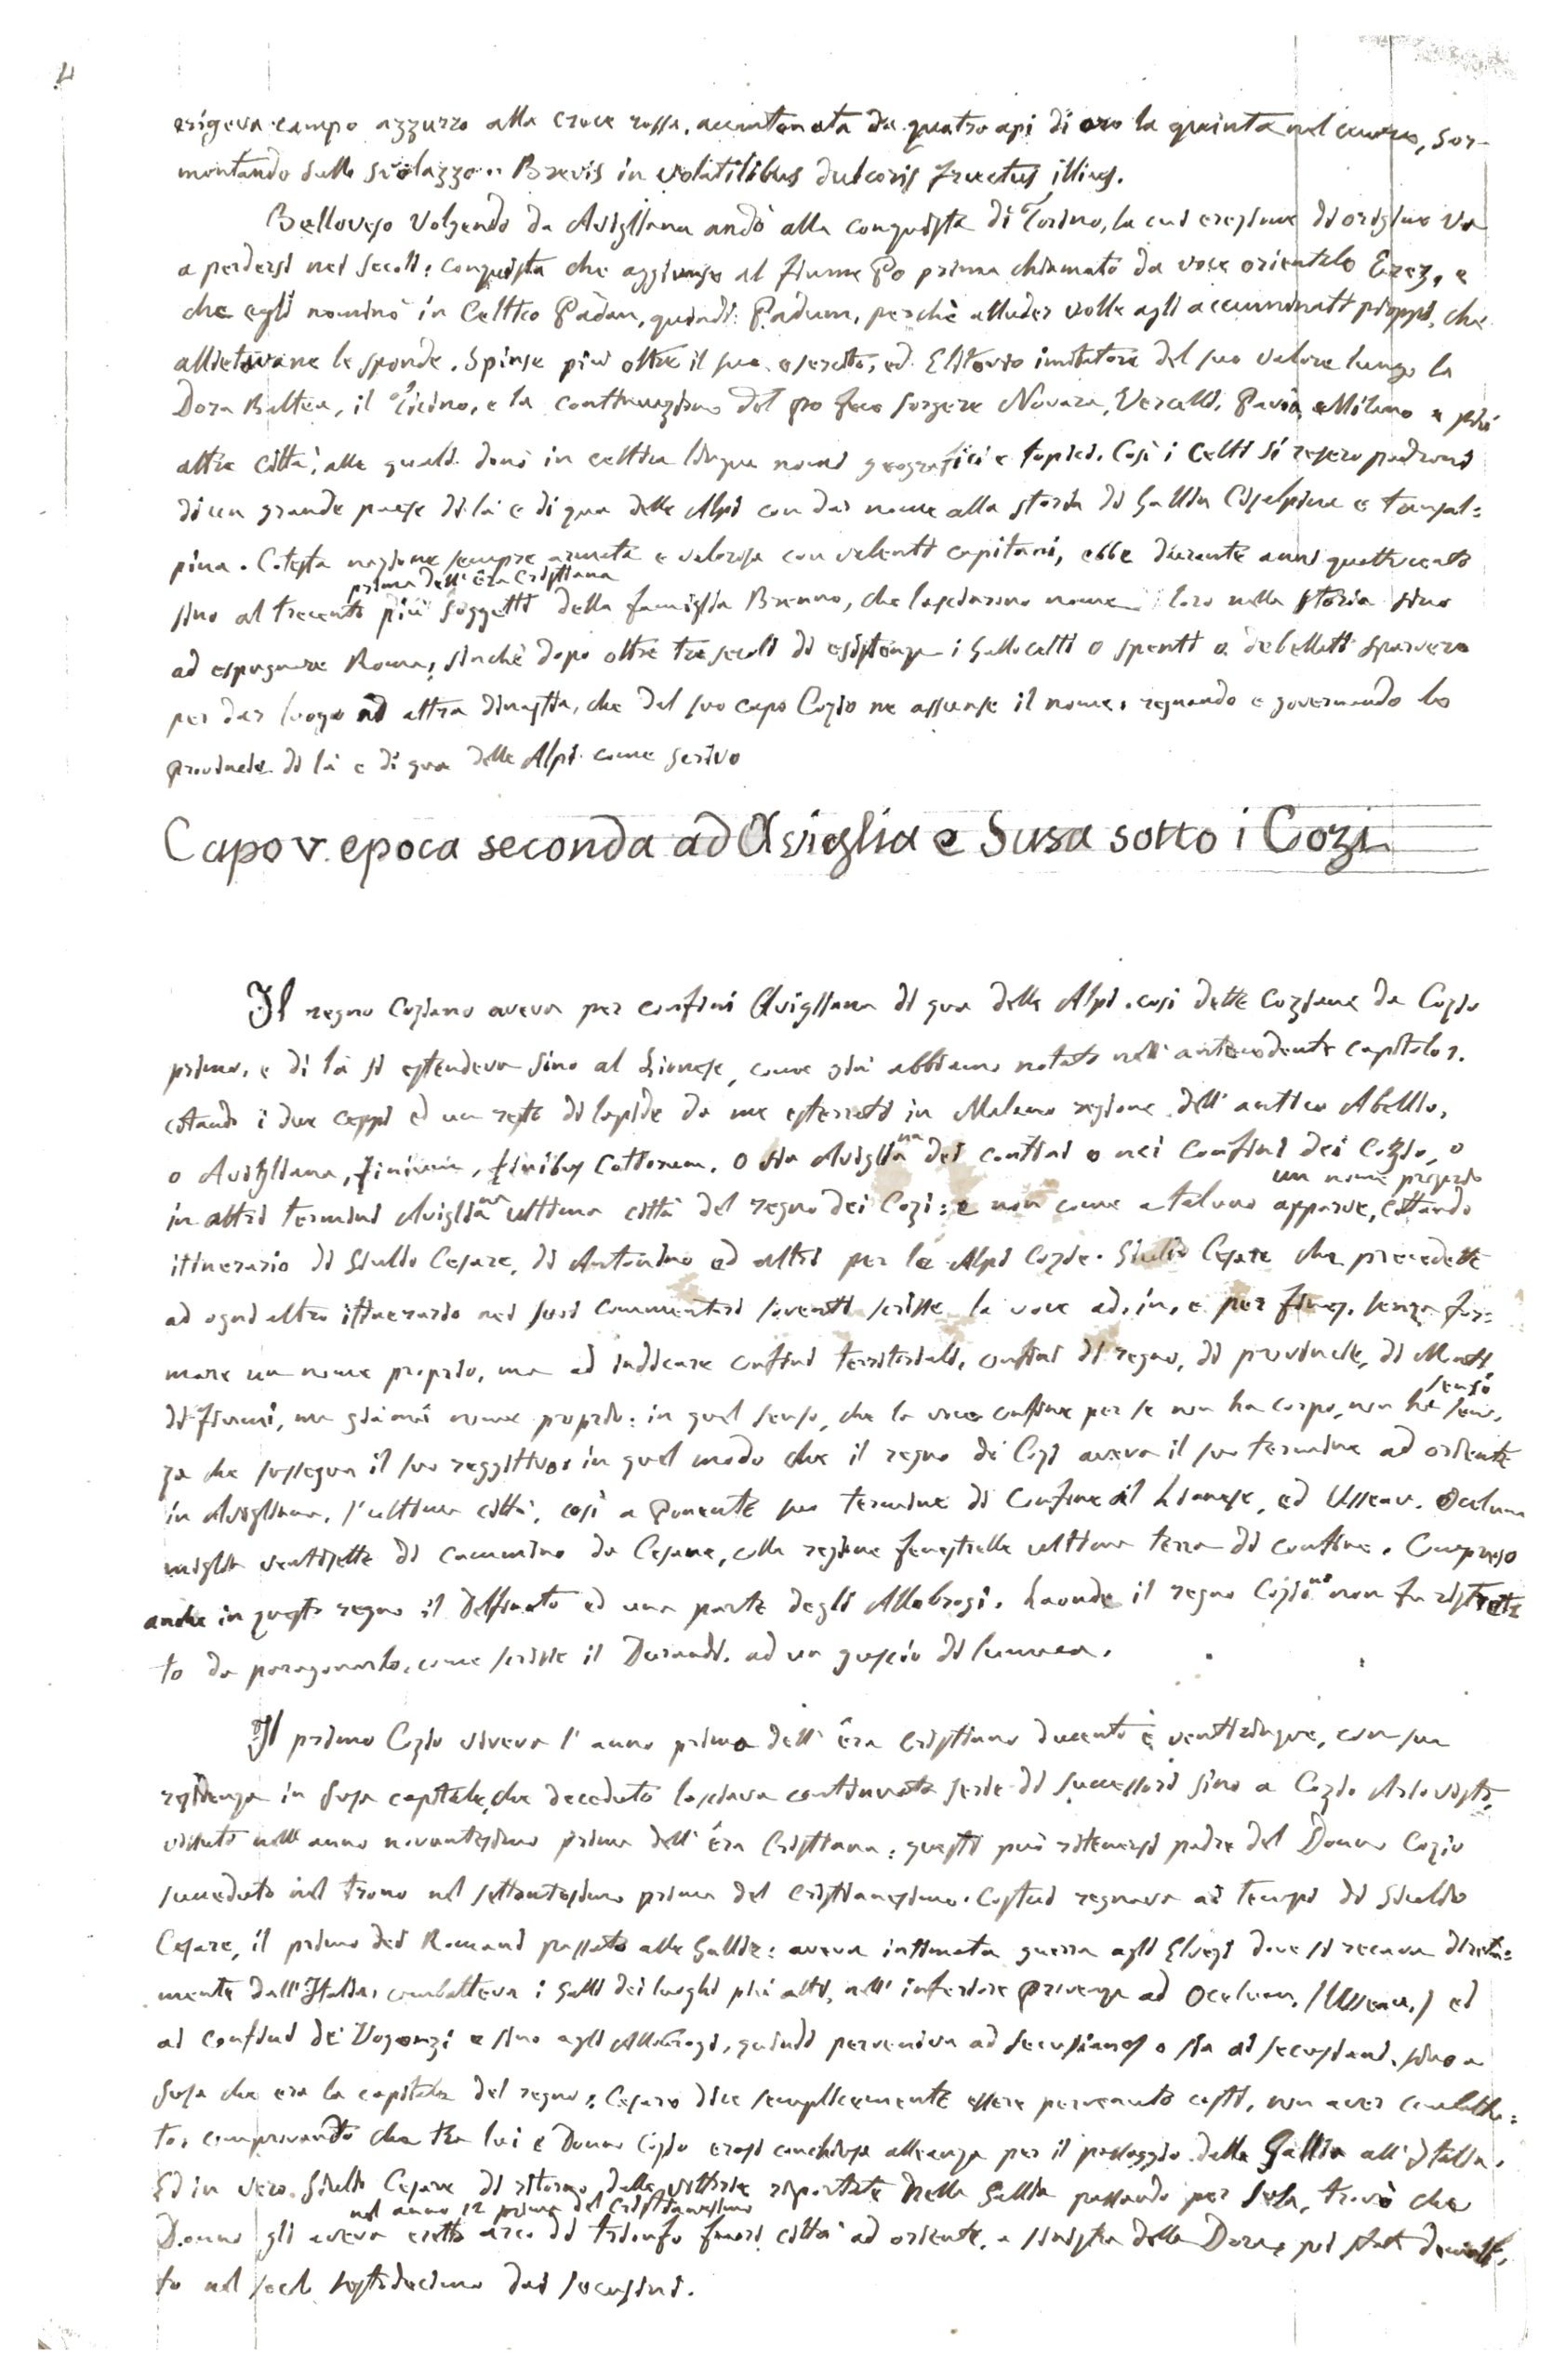 4
erigeva campo azzurro alla croce rossa, accantonata da quatro api di oro la quinta nel cuore, sor-
montando sullo svolazzo: Brevis in volatilibus dulcoris fructus illius.
Belloveso volgendo da Avigliana andò alla conquista di Torino, la cui erezione di origine va
a perdersi nei secoli: conquista che aggiunse al fiume Po prima chiamato da voce orientale Erez, e
che egli nominò in Celtico Padan, quindi: Padum, perchè alluder volle agli accuminati pioppi, che
allietavane le sponde. Spinse più oltre il suo esercito, ed Elitovio imitatore del suo valore lungo la
Dora Baltea, il Ticino, e la continuazione del po fece sorgere Novara, Vercelli, Pavia, e Milano e più
altre città, alle quali donò in celtica lingua nomi geografici e topici. Così i Celti si resero padroni
di un grande paese di là e di qua delle Alpi con dar nome alla storia di Gallia Cisalpina e transal=
pina. Cotesta nazione sempre armata e valorosa con valenti capitani, ebbe durante anni quattrocento
prima dell'êra Cristiana
sino al trecento più soggetti della famiglia Brenno, che lasciarono nome loro nella storia sino
ad espugnare Roma; sinchè dopo oltre tre secoli di esistenza i Gallocelti o spenti o debellati sparvero
per dar luogo ad altra dinastia, che dal suo capo Cozio ne assunse il nome, regnando e governando le
provincie di là e di qua delle Alpi come scrivo
Capo v. epoca seconda ad Aviglia e Susa sotto i Cozi
Il regno Coziano aveva per confini Avigliana di qua delle Alpi, così dette Coziane da Cozio
primo, e di là si estendeva sino al Lionese, come già abbiamo notato nell'antecedente capitolo 1.
citando i due ceppi ed un resto di lapide da me esterrati in Malano regione dell'antico Abellio,
o Avigliana, finium, finibus Cottorum. o sia Avigliana dei confini o nei Confini dei Cozio, o
un nome proprio
in altri termini Avigliana ultima città del regno dei Cozi: e non come a taluno apparve, citando
itinerario di Giulio Cesare, di Antonino ed altri per le Alpi Cozie. Giulio Cesare che precedette
ad ogni altro itinerario nei suoi Commentari soventi scrisse la voce ad, in, e per fines, senza for=
mare un nome proprio, ma ad indicare confini territoriali, confini di regno, di provincie, di Monti
senso
di fiumi, ma giàmai nome proprio: in quel senso, che la voce confine per se non ha corpo, non ha sen,
za che sussegua il suo reggittivo: in quel modo che il regno de' Cozi aveva il suo termine ad oriente
in Avigliana, l'ultima città, così a Ponente suo termine di Confine il Lionese, ed Usseau, Ocelum
miglia ventisette di cammino da Cesana, colla regione fenestrelle ultima terra di confine. Compreso
anche in questo regno il Delfinato ed una parte degli Allobrogi. Laonde il regno Coziano non fu ristret
to da paragonarlo, come scrisse il Durandi, ad un guscio di lumaca.
Il primo Cozio viveva l'anno prima dell'êra cristiana ducento e venticinque, con sua
residenza in Susa capitale, che deceduto lasciava continuata serie di successori sino a Cozio Ariovisto,
vissuto nell'anno novantesimo prima dell'êra Cristiana: questi può ritenersi padre del Donno Cozio
succeduto nel trono nel settantesimo prima del Cristianesimo. Costui regnava ai tempi di Giulio
Cesare, il primo dei Romani passato alle Gallie: aveva intimata guerra agli Elvezi dove si recava diretta=
mente dall'Italia, combatteva i Galli dei luoghi più alti, nell'inferiore Provenza ad Ocelum, (Usseau,) ed
ai confini de' Vogonzi e sino agli Allobrogi, quindi perveniva ad Secusianos o sia ai secusiani, sino a
Susa che era la capitale del regno: Cesare dice semplicemente essere pervenuto costì, non aver combattu=
to, comprovando che tra lui e Donno Cozio erasi conchiusa alleanza per il passaggio dalla Gallia all'Italia.
Ed in vero, Giulio Cesare di ritorno dalle vittorie riportate nella Gallia passando per Susa, trovò che
nel anno 12 prima del Cristianesimo
Donno gli aveva eretto arco di trionfo fuori città ad oriente, a sinistra della Dora, poi stato demoli,
to nel secolo sestodecimo dai secusini.